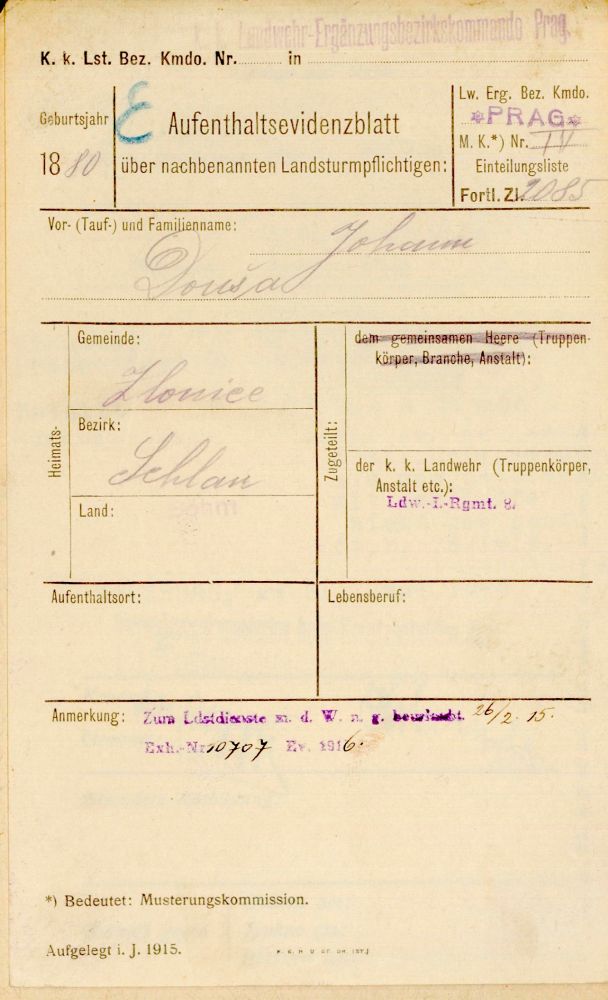 k. k. Landwehr-Ergänzungsbezirkskommando Prag.
K. k. Lst. Bez. Kmdo. Nr. in
Geburtsjahr
1880
E
Aufenthaltsevidenzblatt
über nachbenannten Landsturmpflichtigen:
Lw. Erg. Bez. Kmdo.
*PRAG*
M. K.*) Nr. IV
Einteilungsliste
Fortl. Zl. 2085
Vor- (Tauf-) und Familienname:
Johann
Douša
Heimats-
Gemeinde:
Zlonice
Bezirk:
Schlan
Land:
Zugeteilt:
dem gemeinsamen Heere (Truppen-
körper, Branche, Anstalt):
der k. k. Landwehr (Truppenkörper,
Anstalt etc.):
Ldw.-I.-Rgmt. 8.
Aufenthaltsort:
Lebensberuf:
Anmerkung: Zum Ldstdienste m. d. W. n. g. 26/2. 15.
Exh.-Nr 10707 Ev. 1916.
*) Bedeutet: Musterungskommission.
Aufgelegt i. J. 1915.